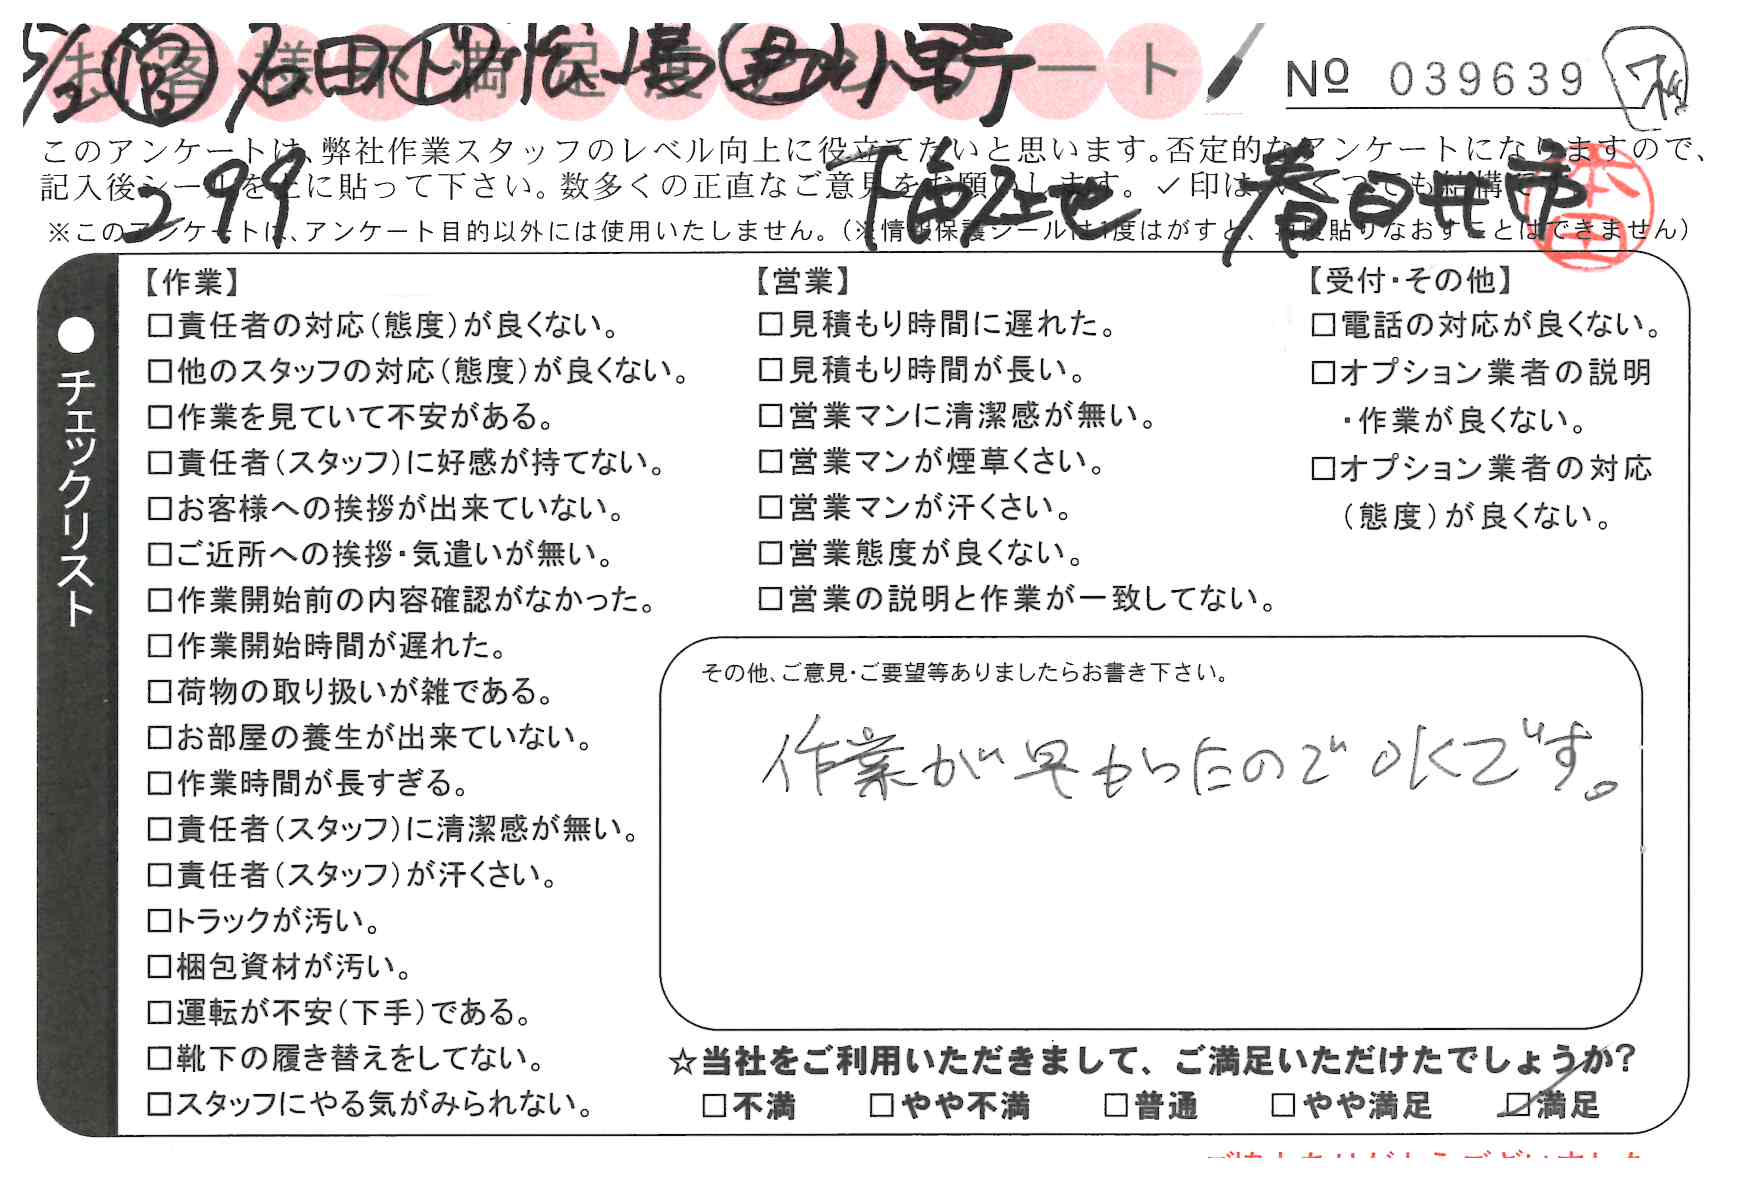 お客様不満足度アンケート
5/2 石田 小野
№ 039639
このアンケートは、弊社作業スタッフのレベル向上に役立てたいと思います。否定的なアンケートになりますので、
記入後シールを上に貼って下さい。数多くの正直なご意見をお願いします。✓印はいくつでも結構です。
299 春日井市
本田
※このアンケートは、アンケート目的以外には使用いたしません。(※情報保護シールは1度はがすと、再度貼りなおすことはできません)
●チェックリスト
【作業】
□責任者の対応(態度)が良くない。
□他のスタッフの対応(態度)が良くない。
□作業を見ていて不安がある。
□責任者(スタッフ)に好感が持てない。
□お客様への挨拶が出来ていない。
□ご近所への挨拶・気遣いが無い。
□作業開始前の内容確認がなかった。
□作業開始時間が遅れた。
□荷物の取り扱いが雑である。
□お部屋の養生が出来ていない。
□作業時間が長すぎる。
□責任者(スタッフ)に清潔感が無い。
□責任者(スタッフ)が汗くさい。
□トラックが汚い。
□梱包資材が汚い。
□運転が不安(下手)である。
□靴下の履き替えをしてない。
□スタッフにやる気がみられない。
【営業】
□見積もり時間に遅れた。
□見積もり時間が長い。
□営業マンに清潔感が無い。
□営業マンが煙草くさい。
□営業マンが汗くさい。
□営業態度が良くない。
□営業の説明と作業が一致してない。
【受付・その他】
□電話の対応が良くない。
□オプション業者の説明
・作業が良くない。
□オプション業者の対応
(態度)が良くない。
その他、ご意見・ご要望等ありましたらお書き下さい。
作業が早かったのでOKです。
☆当社をご利用いただきまして、ご満足いただけたでしょうか?
□不満 □やや不満 □普通 □やや満足 ☑満足
ご協力ありがとうございました